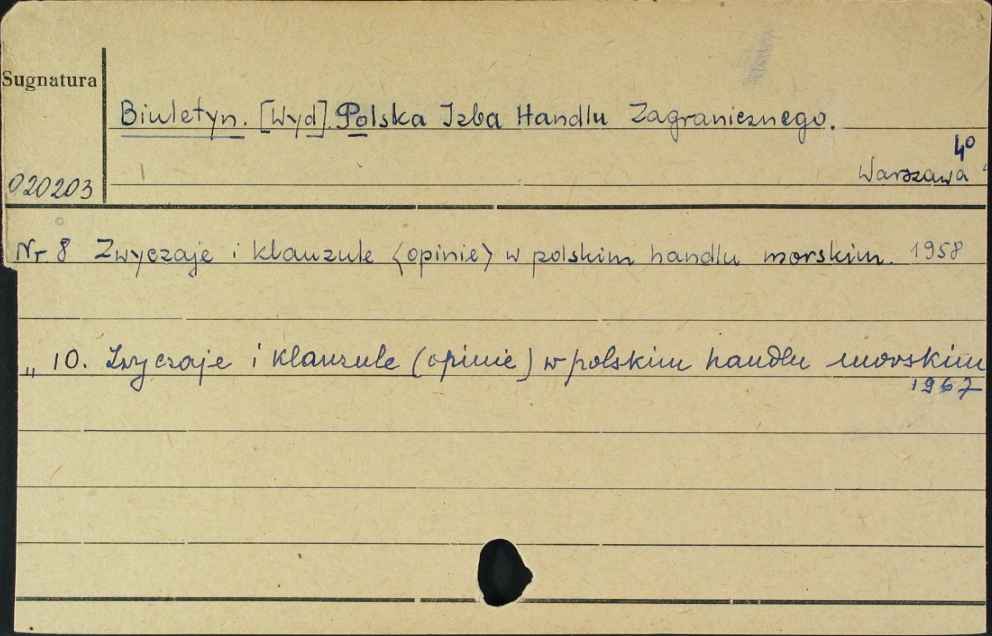 Sugnatura
Biuletyn. [Wyd]. Polska Izba Handlu Zagranicznego.
4°
Warszawa
020203
Nr 8 Zwyczaje i klauzule (opinie) w polskim handlu morskim. 1958
„ 10. Zwyczaje i klauzule (opinie) w polskim handlu morskim
1967